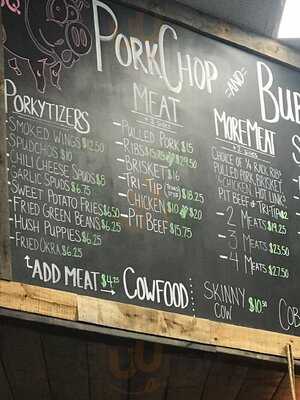 PORKCHOP AND BUB
PORKYTIZERS
SMOKED WINGS $12.50
SPUDCHOS $10
CHILI CHEESE SPUDS $8
GARLIC SPUDS $6.75
SWEET POTATO FRIES $6.50
FRIED GREEN BEANS $6.25
HUSH PUPPIES $6.25
FRIED OKRA $6.25
ADD MEAT $4.25
MEAT
PULLED PORK $15
RIBS $29.50
BRISKET $16
TRI-TIP $18.25
CHICKEN $10 $20
PIT BEEF $15.75
MORE MEAT
CHOICE OF 1/4 RACK RIBS
PULLED PORK, BRISKET,
CHICKEN, HOT LINK
PIT BEEF & TRI-TIP
- 2 MEATS $19.25
- 3 MEATS $23.50
- 4 MEATS $27.50
COWFOOD
SKINNY COW $10.50
COB